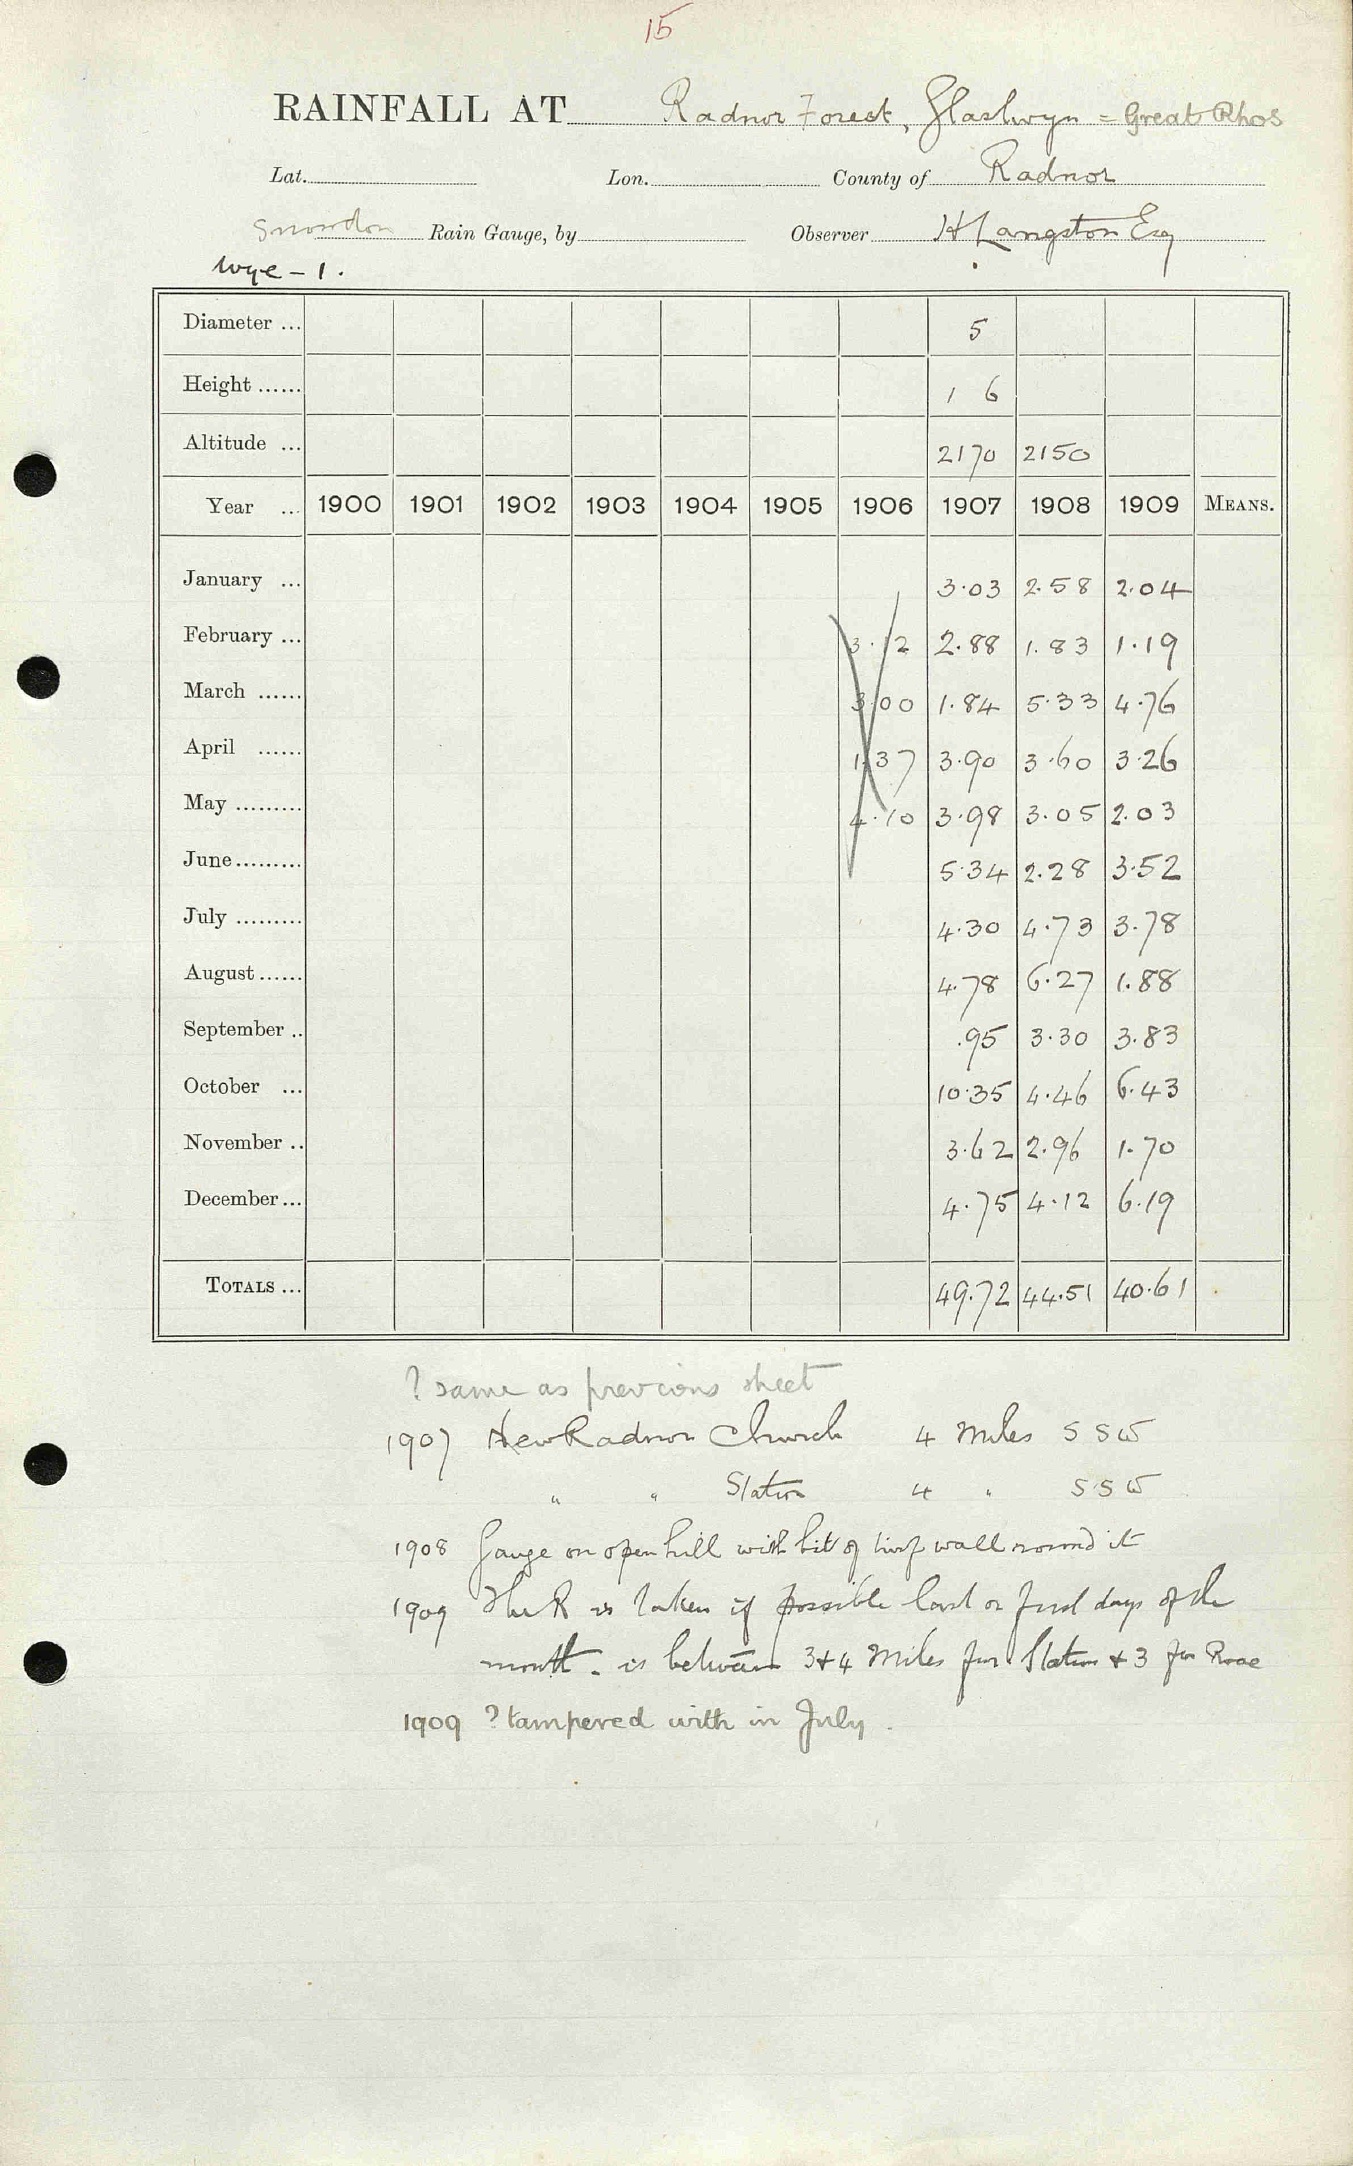 15
RAINFALL AT Radnor Forest, Glaslwyn = Great Rhos
Lat. Lon. County of Radnor
Snowdon Rain Gauge, by Observer H Langston Esq
Wye - 1.
Diameter ... 5
Height ...... 1 6
Altitude ... 2170 2150
Year ... 1900 1901 1902 1903 1904 1905 1906 1907 1908 1909 MEANS.
January ... 3.03 2.58 2.04
February ... 3.12 2.88 1.83 1.19
March ...... 3.00 1.84 5.33 4.76
April ...... 1.37 3.90 3.60 3.26
May ......... 4.10 3.98 3.05 2.03
June ......... 5.34 2.28 3.52
July ......... 4.30 4.73 3.78
August ...... 4.78 6.27 1.88
September .. .95 3.30 3.83
October ... 10.35 4.46 6.43
November .. 3.62 2.96 1.70
December ... 4.75 4.12 6.19
TOTALS ... 49.72 44.51 40.61
? same as previous sheet
1907 New Radnor Church 4 Miles S S W
" " Station 4 " S S W
1908 Gauge on open hill with bit of turf wall round it
1909 The R is taken if possible last or first days of the
month. is between 3 & 4 Miles from Station & 3 from
1909 ? tampered with in July.